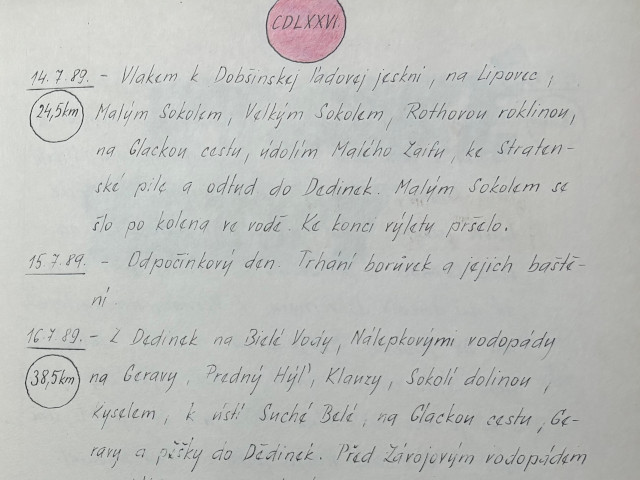 CDLXXVI.
14.7.89. - Vlakem k Dobšinskej ľadovej jeskni, na Lipovec,
24,5km Malým Sokolem, Velkým Sokolem, Rothovou roklinou,
na Glackou cestu, údolím Malého Zaifu, ke Straten-
ské pile a odtud do Dedinek. Malým Sokolem se
šlo po kolena ve vodě. Ke konci výletu pršelo.
15.7.89. - Odpočinkový den. Trhání borůvek a jejich baště-
ní
16.7.89. - Z Dedinek na Bielé Vody, Nálepkovými vodopády
38,5km na Geravy, Predný Hýľ, Klauzy, Sokolí dolinou,
Kyselem, k ústí Suché Belé, na Glackou cestu, Ge-
ravy a pěšky do Dědinek. Před Závojovým vodopádem